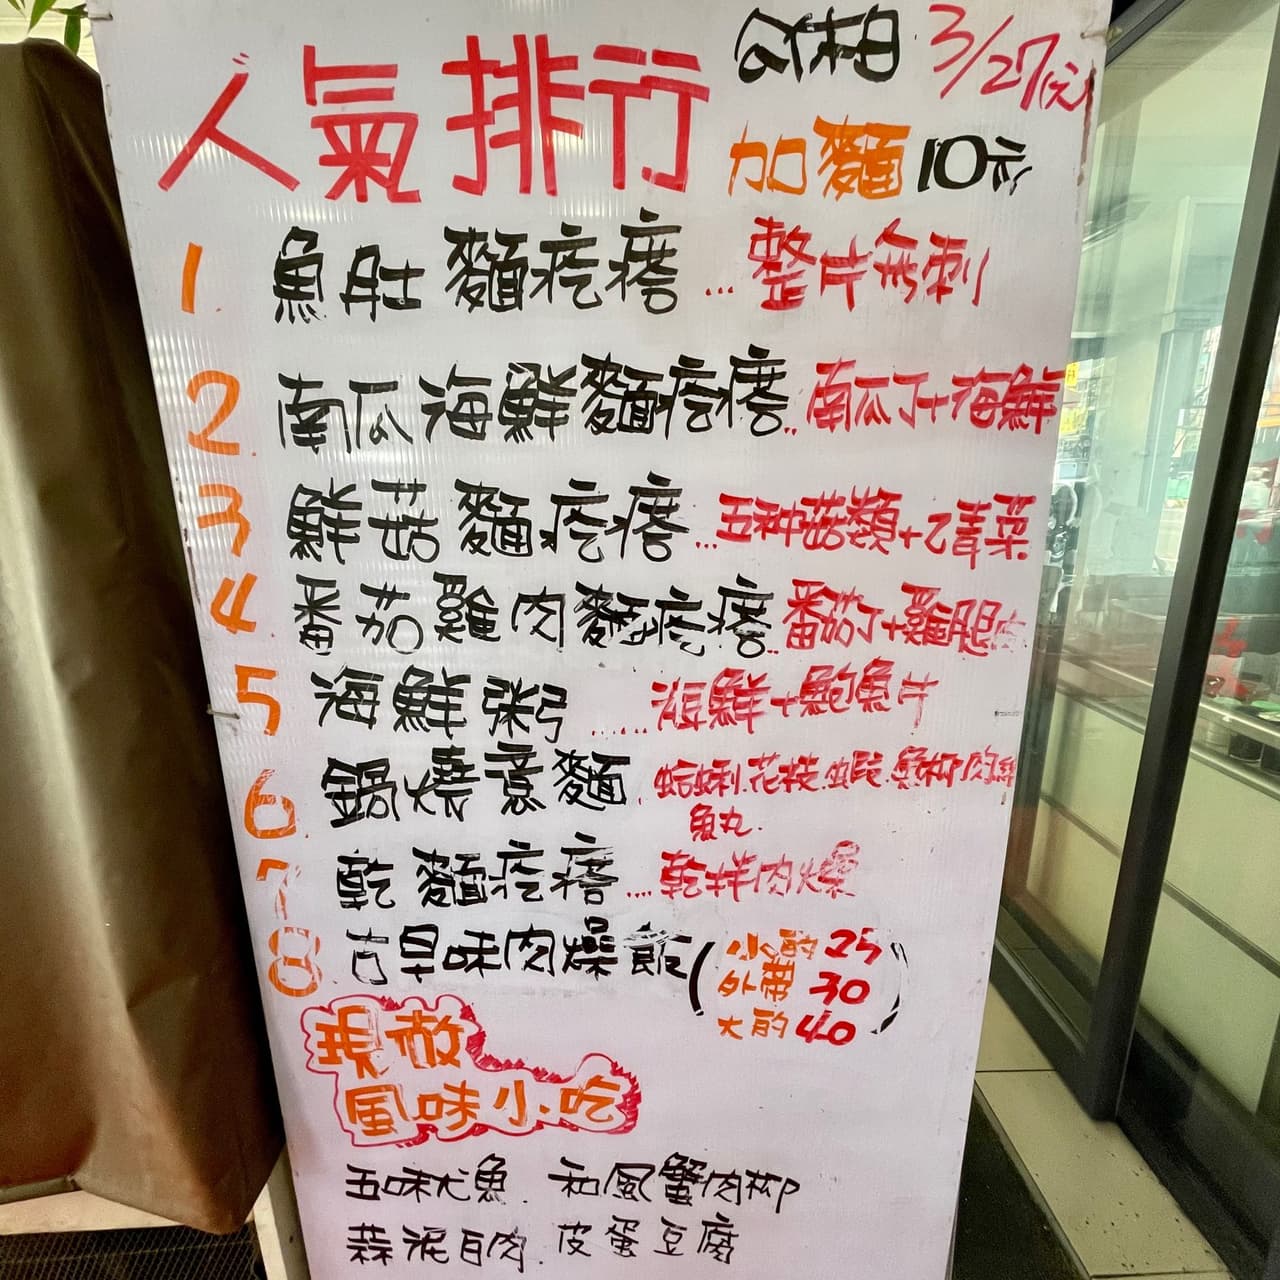 人氣排行
公休 3/27(六)
加麵10元
1 魚肚麵疙瘩...整片無刺
2 南瓜海鮮麵疙瘩..南瓜丁+海鮮
3 鮮菇麵疙瘩...五种菇類+青菜
4 番茄雞肉麵疙瘩..番茄丁+雞腿肉
5 海鮮粥......海鮮+鮑魚片
6 鍋燒意麵.蛤蜊.花枝.蝦.蟹柳.肉絲
魚丸.
7 乾麵疙瘩....乾拌肉燥
8 古早味肉燥飯(小的25
外帶30
大的40)
現做
風味小吃
五味尤魚.和風蟹肉柳
蒜泥白肉.皮蛋豆腐